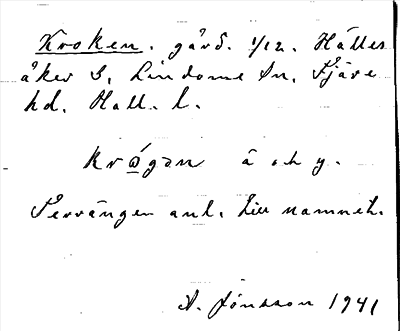 Kroken. gård. 1/12. Hälles
åker S. Lindome Sn. Fjäre
hd. Hall. l.
krógan ä och y.
Terrängen anl. till namnet.
A. Jönsson 1941